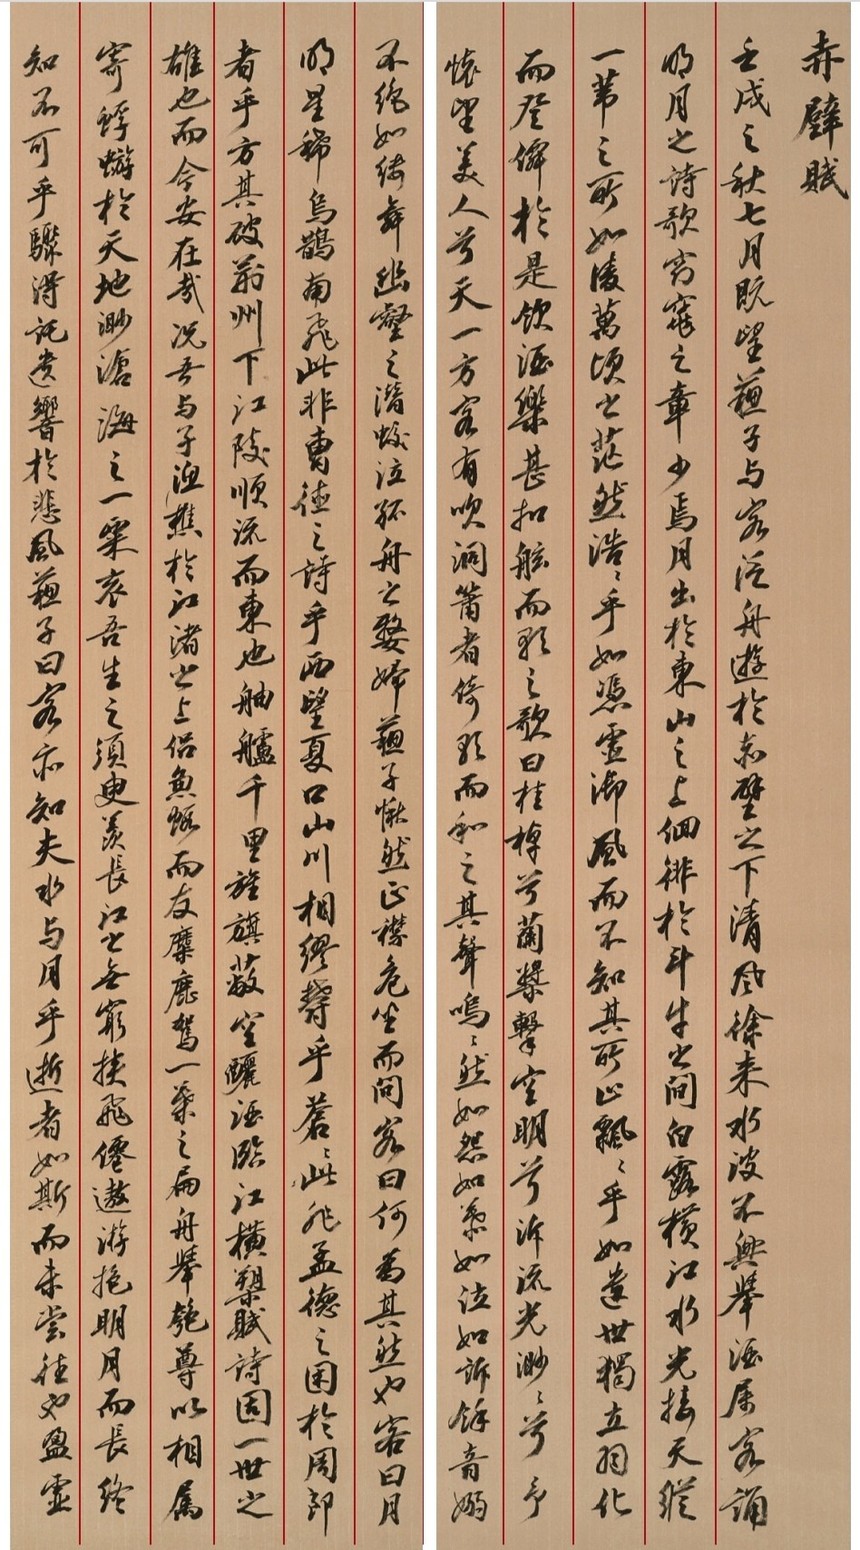 赤壁賦
壬戌之秋七月既望蘇子与客泛舟遊於赤壁之下清風徐来水波不興舉酒属客誦
明月之詩歌窈窕之章少焉月出於東山之上佪徘於斗牛之間白露橫江水光接天縱
一葦之所如凌萬頃之茫然浩〻乎如馮虛御風而不知其所止飄〻乎如遺世獨立羽化
而登僊於是飲酒樂甚扣舷而歌之歌曰桂棹兮蘭槳擊空明兮泝流光渺〻兮予
懷望美人兮天一方客有吹洞簫者倚歌而和之其聲嗚〻然如怨如慕如泣如訴餘音嫋
不絕如縷舞幽壑之潛蛟泣孤舟之嫠婦蘇子愀然正襟危坐而問客曰何為其然也客曰月
明星稀烏鵲南飛此非曹德之詩乎西望夏口山川相繆鬱乎蒼〻此非孟德之困於周郎
者乎方其破荊州下江陵順流而東也舳艫千里旌旗蔽空釃酒臨江橫槊賦詩固一世之
雄也而今安在哉況吾与子漁樵於江渚之上侶魚蝦而友麋鹿駕一葉之扁舟舉匏尊以相属
寄蜉蝣於天地渺滄海之一粟哀吾生之須臾羨長江之無窮挾飛僊遨游抱明月而長終
知不可乎驟得託遺響於悲風蘇子曰客亦知夫水与月乎逝者如斯而未嘗往也盈虛